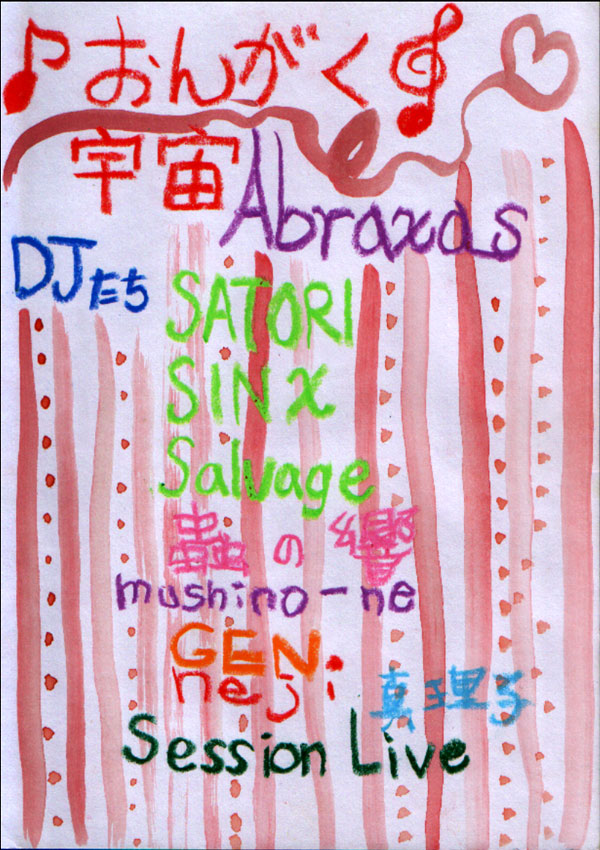 おんがく
宇宙 Abraxas
DJたち
SATORI
SINX
Salvage
蟲の響
mushino-ne
GEN
neji
真理子
Session Live